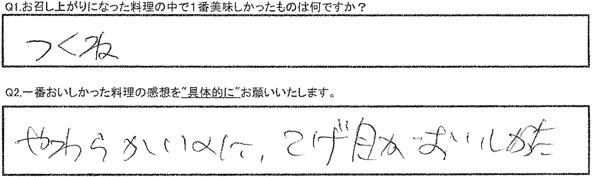 Q1.お召し上がりになった料理の中で1番美味しかったものは何ですか？
つくね
Q2.一番おいしかった料理の感想を"具体的に"お願いいたします。
やわらかいのに、こげ目がおいしかった